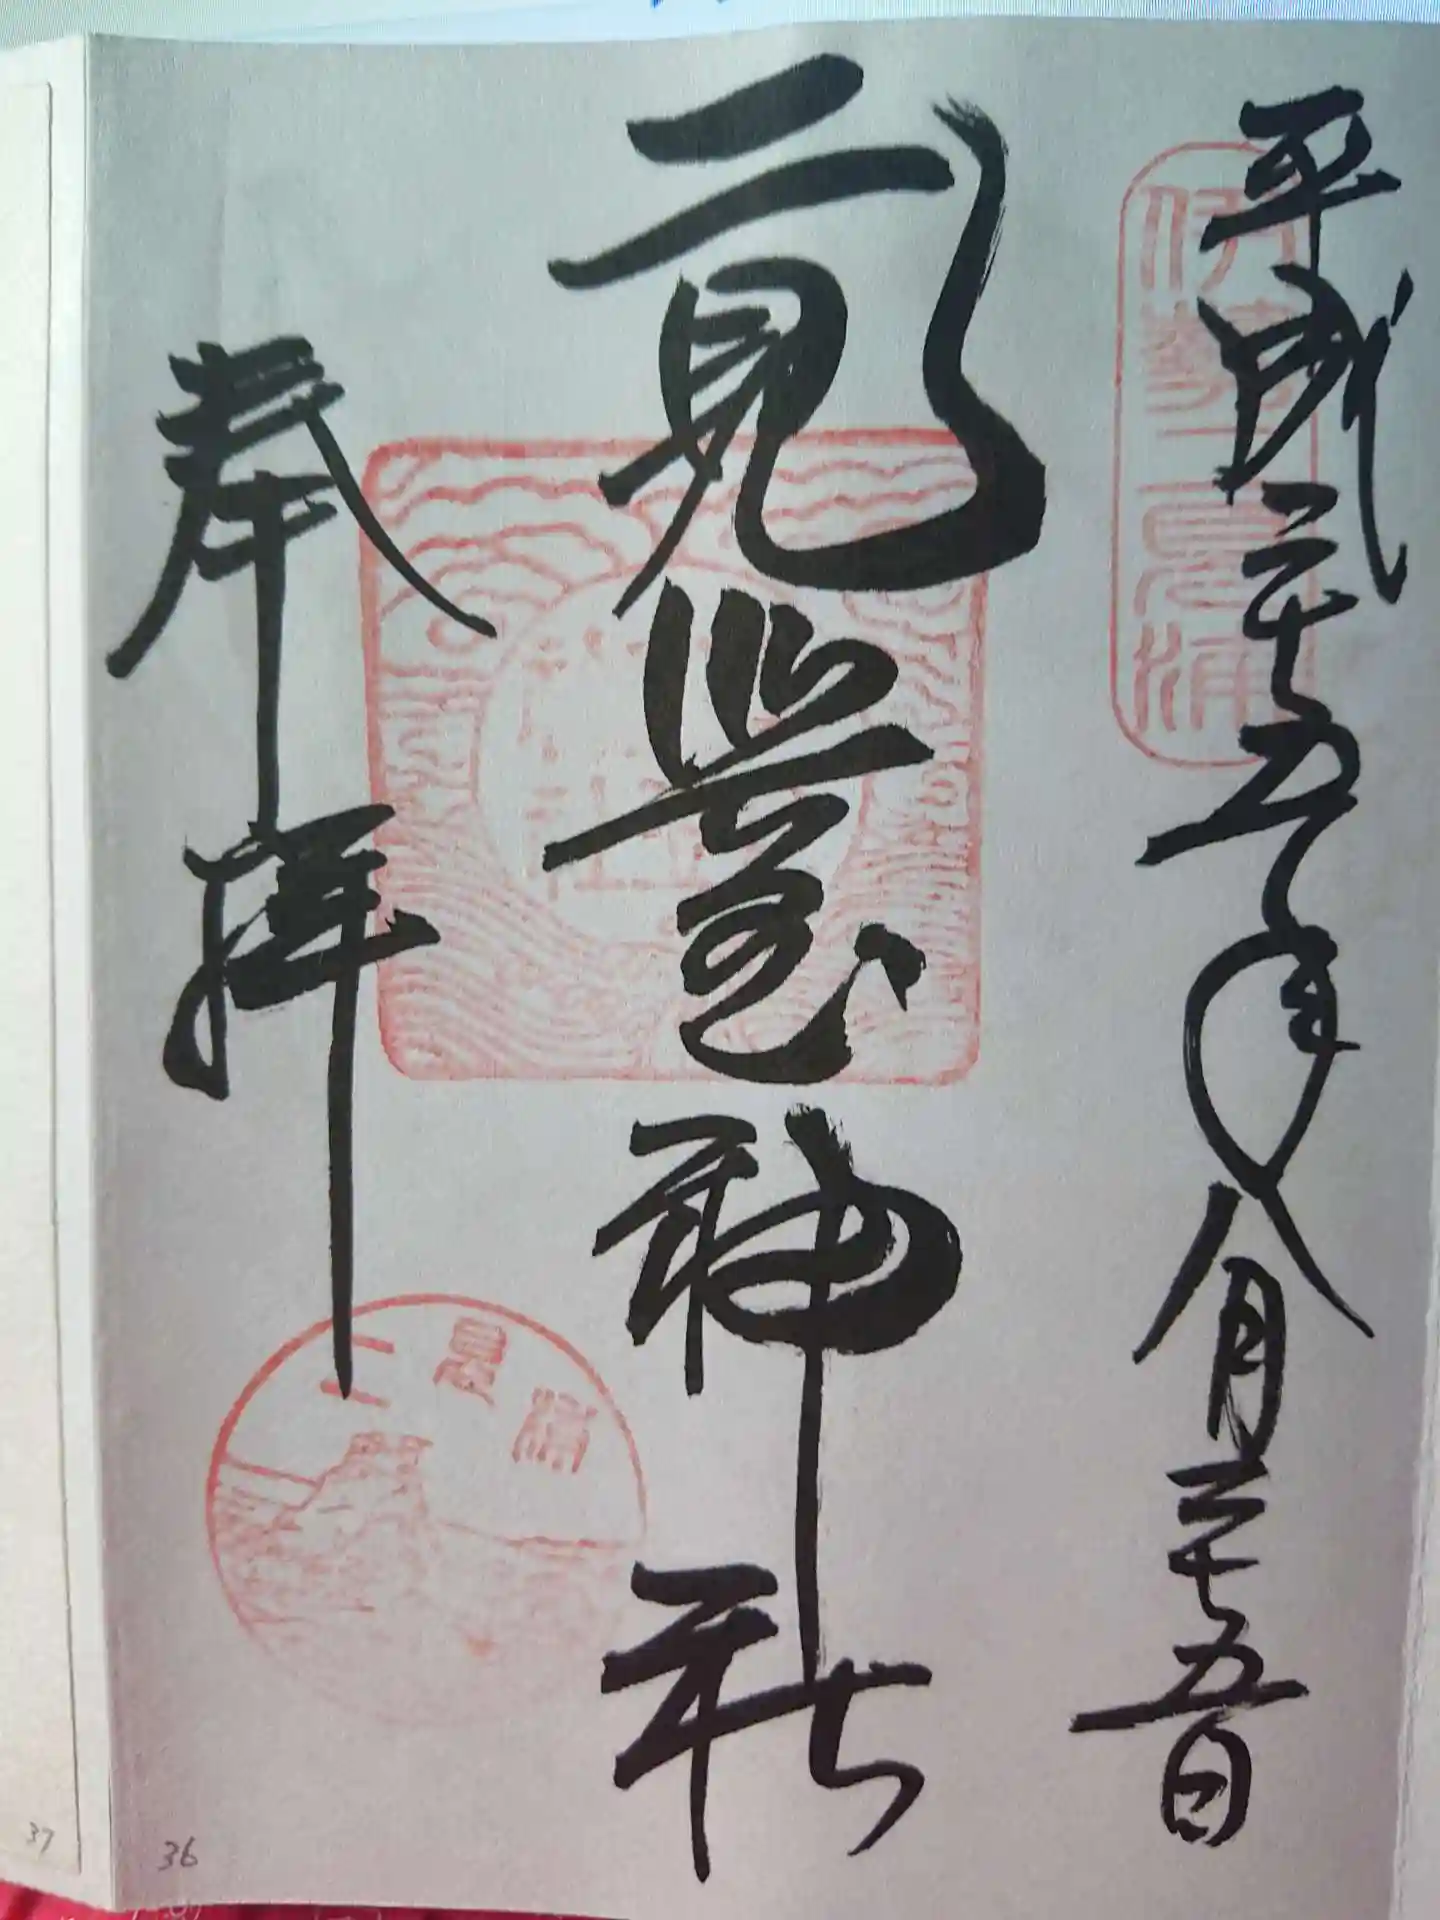 平成二十五年八月二十五日
伊勢二見浦
二見興玉神社
奉拝
二見浦
36
37